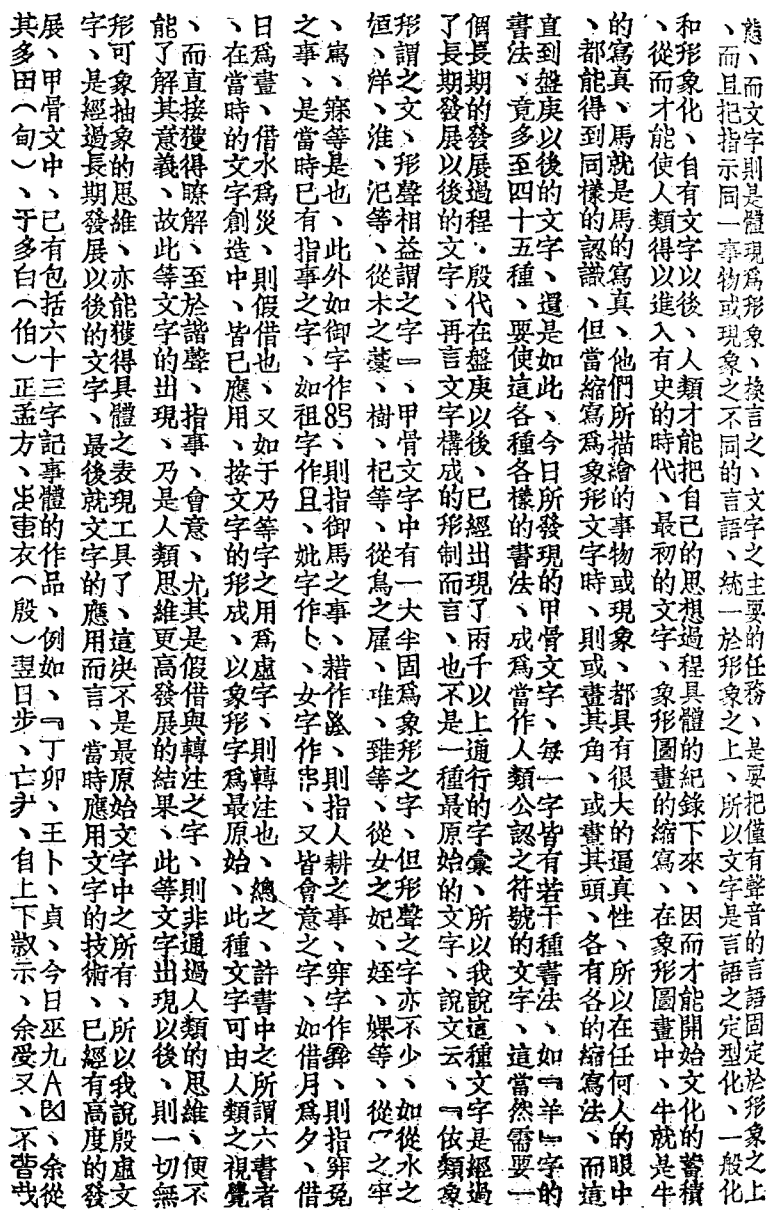 態、而文字則是體現爲形象、換言之、文字之主要的任務、是要把僅有聲音的言語固定於形象之上
、而且把指示同一事物或現象之不同的言語、統一於形象之上、所以文字是言語之定型化、一般化
和形象化、自有文字以後、人類才能把自己的思想過程具體的紀錄下來、因而才能開始文化的蓄積
、從而才能使人類得以進入有史的時代、最初的文字、象形圖畫的縮寫、在象形圖畫中、牛就是牛
的寫真、馬就是馬的寫真、他們所描繪的事物或現象、都具有很大的逼真性、所以在任何人的眼中
、都能得到同樣的認識、但當縮寫爲象形文字時、則或畫其角、或畫其頭、各有各的縮寫法、而這
直到盤庚以後的文字、還是如此、今日所發現的甲骨文字、每一字皆有若干種書法、如『羊』字的
書法、竟多至四十五種、要使這各種各樣的書法、成爲當作人類公認之符號的文字、這當然需要一
個長期的發展過程、殷代在盤庚以後、已經出現了兩千以上通行的字彙、所以我說這種文字是經過
了長期發展以後的文字、再言文字構成的形制而言、也不是一種最原始的文字、說文云、『依類象
形謂之文、形聲相益謂之字』、甲骨文字中有一大半固爲象形之字、但形聲之字亦不少、如從水之
洹、洋、淮、汜等、從木之、樹、杞等、從鳥之、唯、雖等、從女之妃、姪、婐等、從宀之牢
、寫、寐等是也、此外如御字作、則指御馬之事、耤作、則指人耕之事、穽字作、則指穽兔
之事、是當時已有指事之字、如祖字作且、妣字作、女字作、又皆會意之字、如借月爲夕、借
日爲晝、借水爲災、則假借也、又如于乃等字之用爲虛字、則轉注也、總之、許書中之所謂六書者
、在當時的文字創造中、皆已應用、按文字的形成、以象形字爲最原始、此種文字可由人類之視覺
、而直接獲得瞭解、至於諧聲、指事、會意、尤其是假借與轉注之字、則非通過人類的思維、便不
能了解其意義、故此等文字的出現、乃是人類思維更高發展的結果、此等文字出現以後、則一切無
形可象抽象的思維、亦能獲得具體之表現工具了、這決不是最原始文字中之所有、所以我說殷虛文
字、是經過長期發展以後的文字、最後就文字的應用而言、當時應用文字的技術、已經有高度的發
展、甲骨文中、已有包括六十三字記事體的作品、例如、『丁卯、王卜、貞、今日巫九、余從
其多田（甸）、于多白（伯）正盂方、衣（殷）翌日步、亡、自上下示、余受又、不